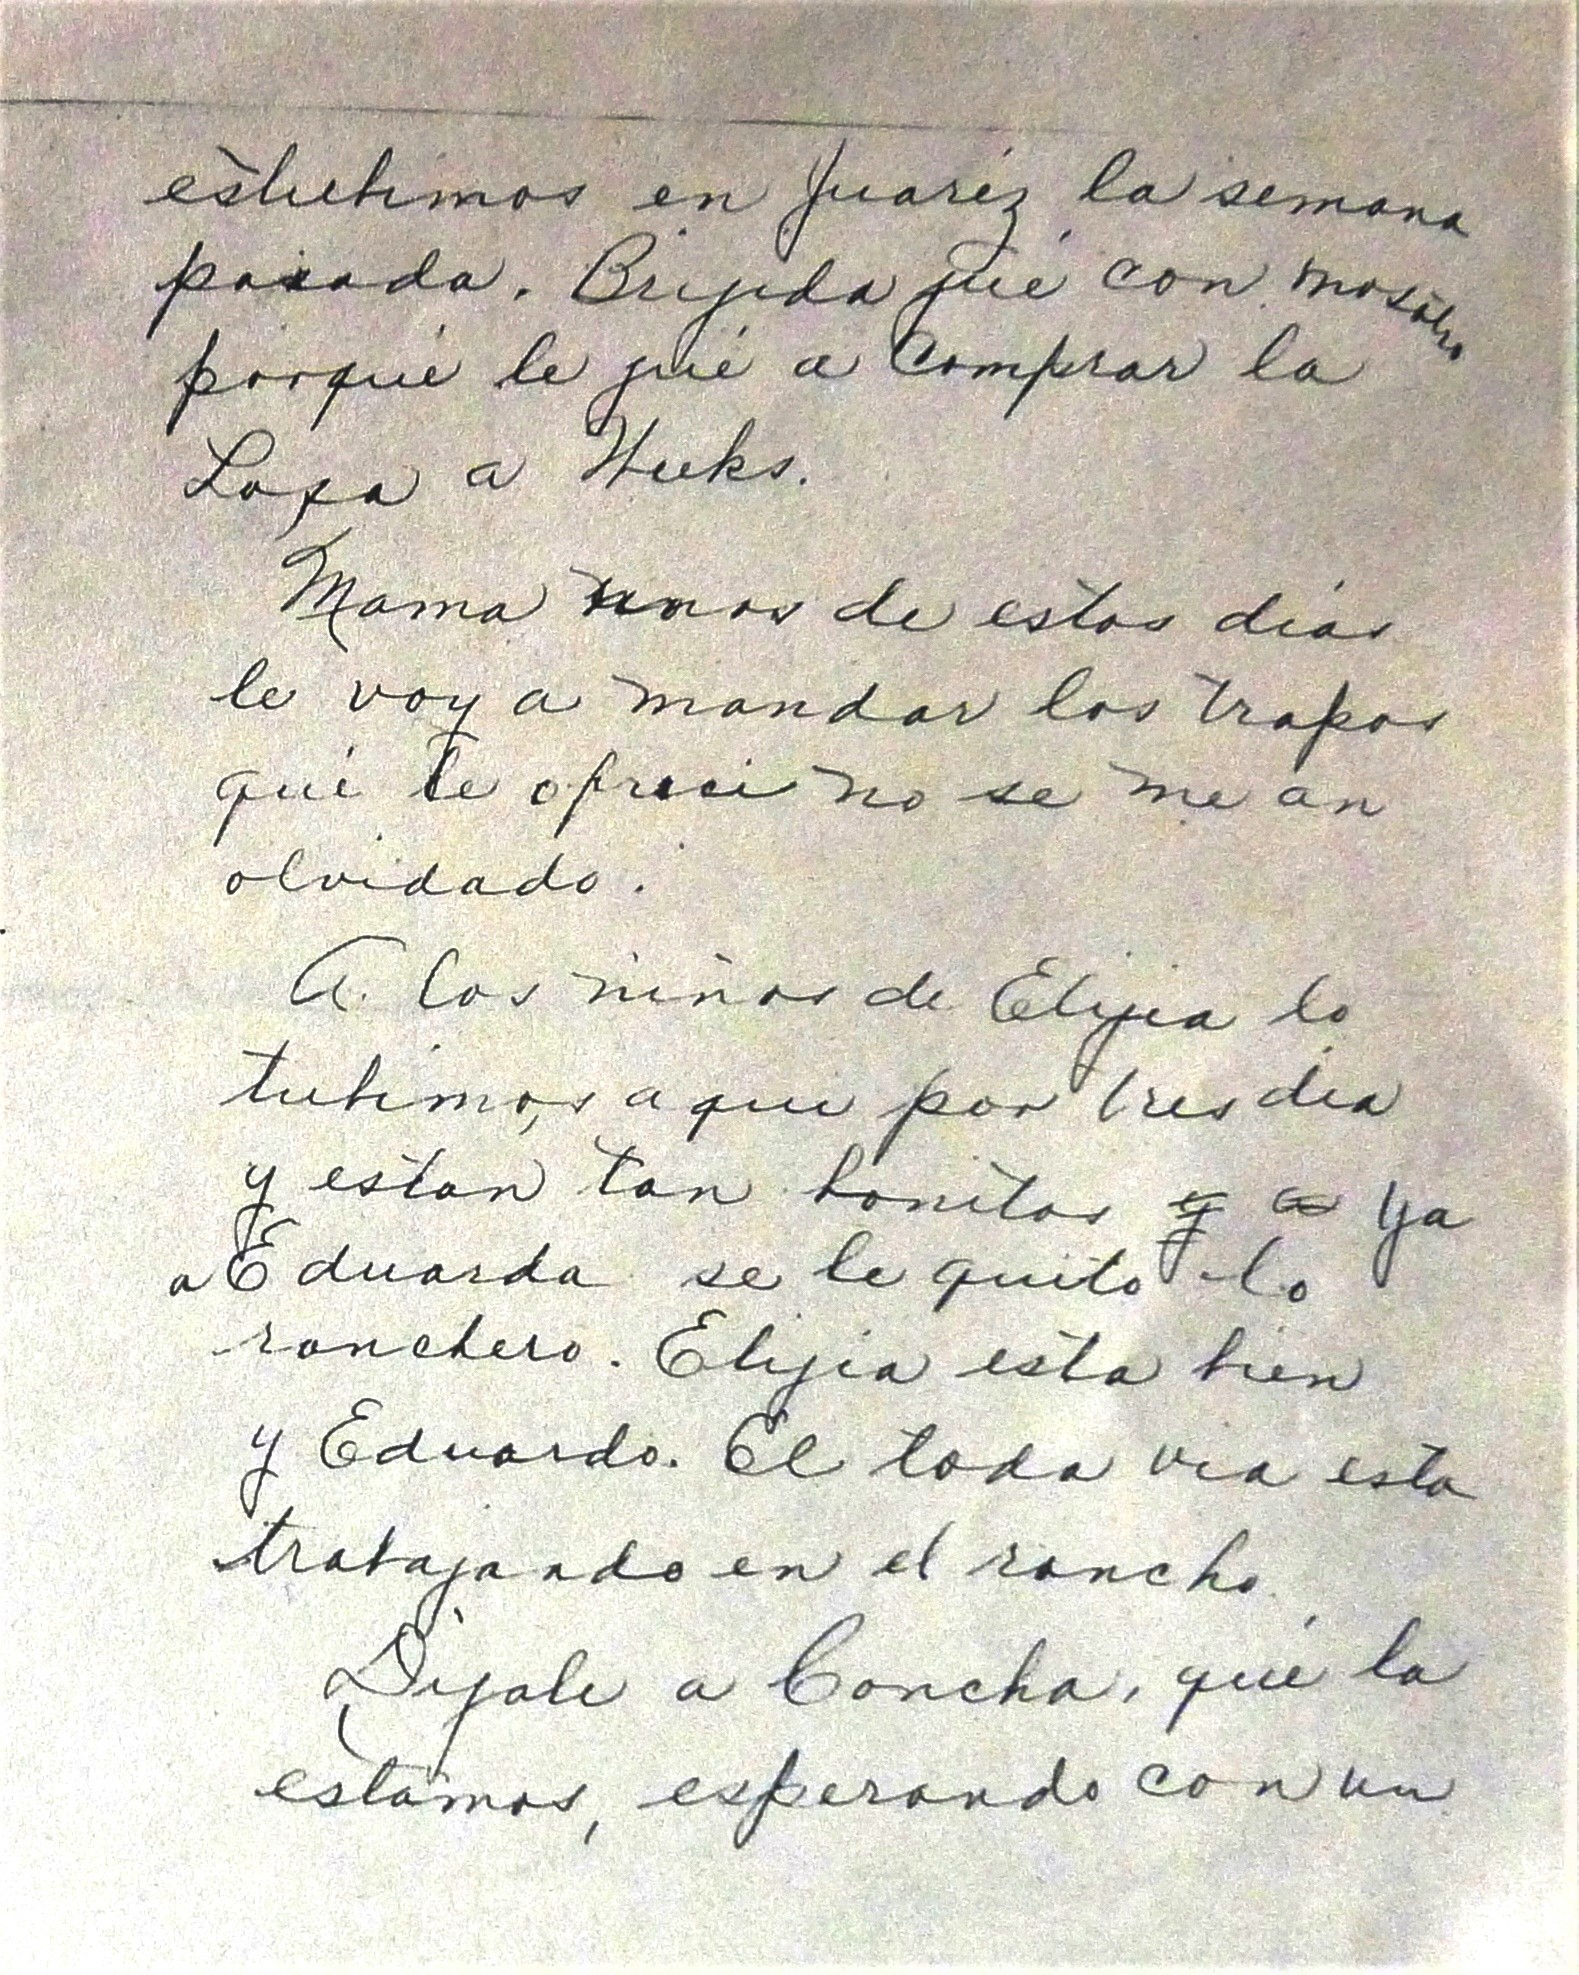 estubimos en Juaréz la semana
pasada. Brijida fué con nosotro
porqué le fué a Comprar la
Loza a Weeks.
Mama unos de estos días
le voy a mandar los trapos
qué le ofreci no se me an
olvidado.
A los niños de Elijia lo
tubimos aqui por tres dia
y estan tan bonitos y a ya
a Eduarda se le quito lo
ranchero. Elijia esta bien
y Eduardo. El toda via esta
trabajando en el rancho
Dijale a Concha, qué la
estamos, esperando con un